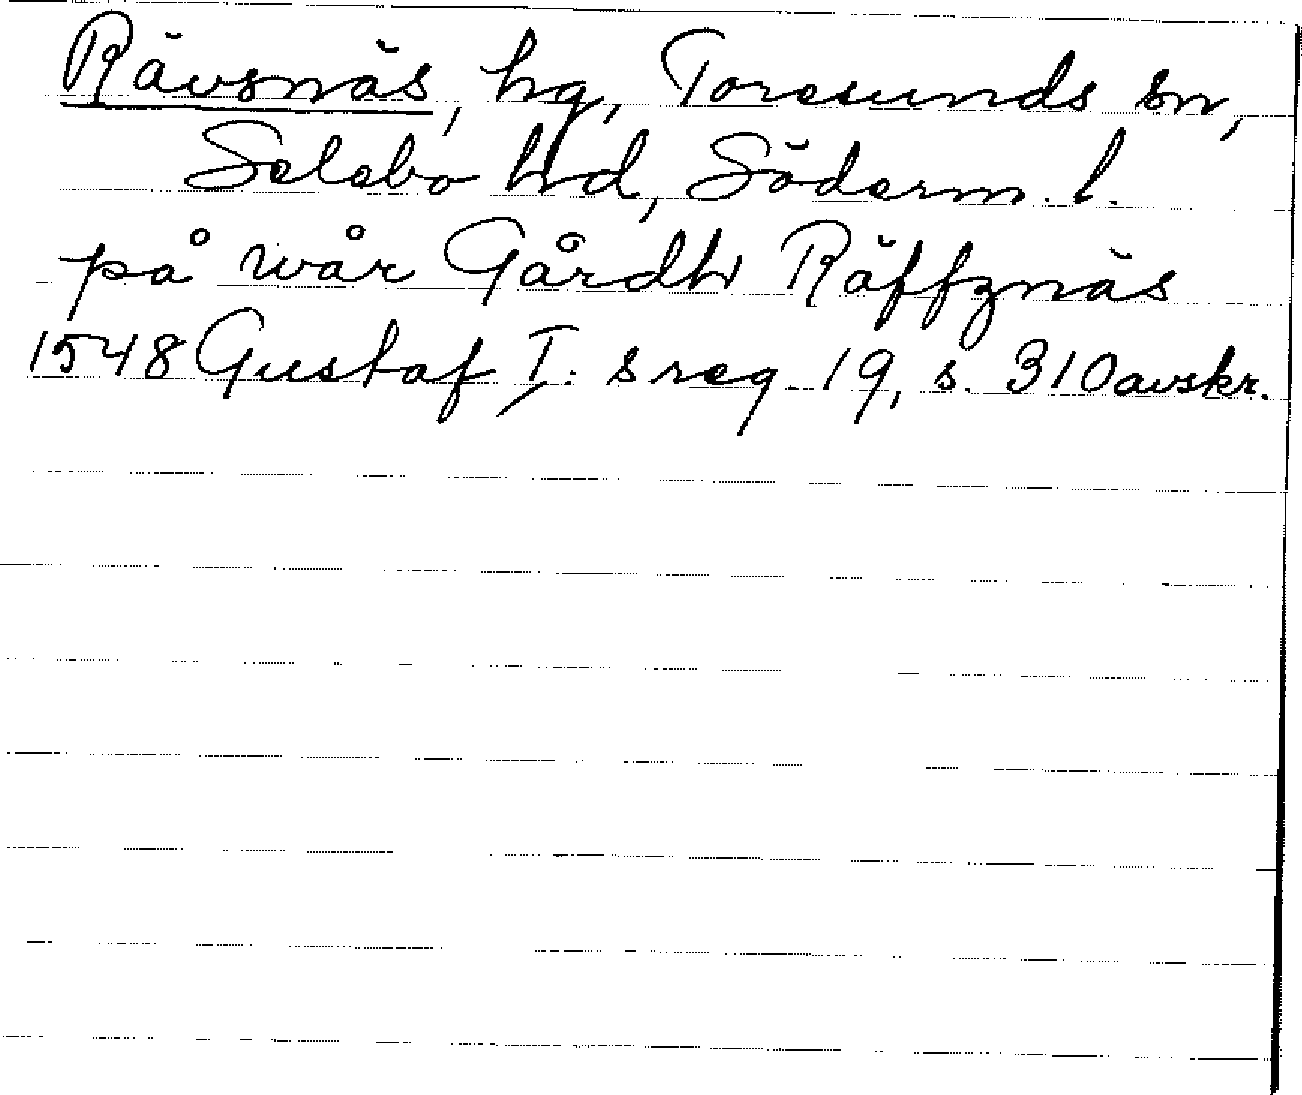 Rävsnäs, hg, Toresunds sn,
Selebo hd, Söderm. l.
på wår Gårdh Räffznäs
1548 Gustaf I: s reg. 19, s. 310 avskr.